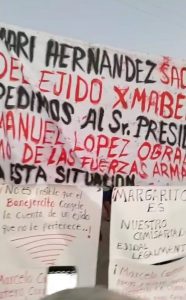 MARI HERNANDEZ SAC
DEL EJIDO X-MABE
PEDIMOS Al Sr. PRESI
MANUEL LOPEZ OBRA
MO DE LAS FUERZAS ARMA
A ESTA SITUA
¡NO ES Posible que el
Banejercito Congele
la cuenta de un ejido
que no le pertenece..!
Marcelo C
MARGARITO
ES
NUESTRO
COMISARIA
EJIDAL LEGALMENT
¡Marcelo Ca